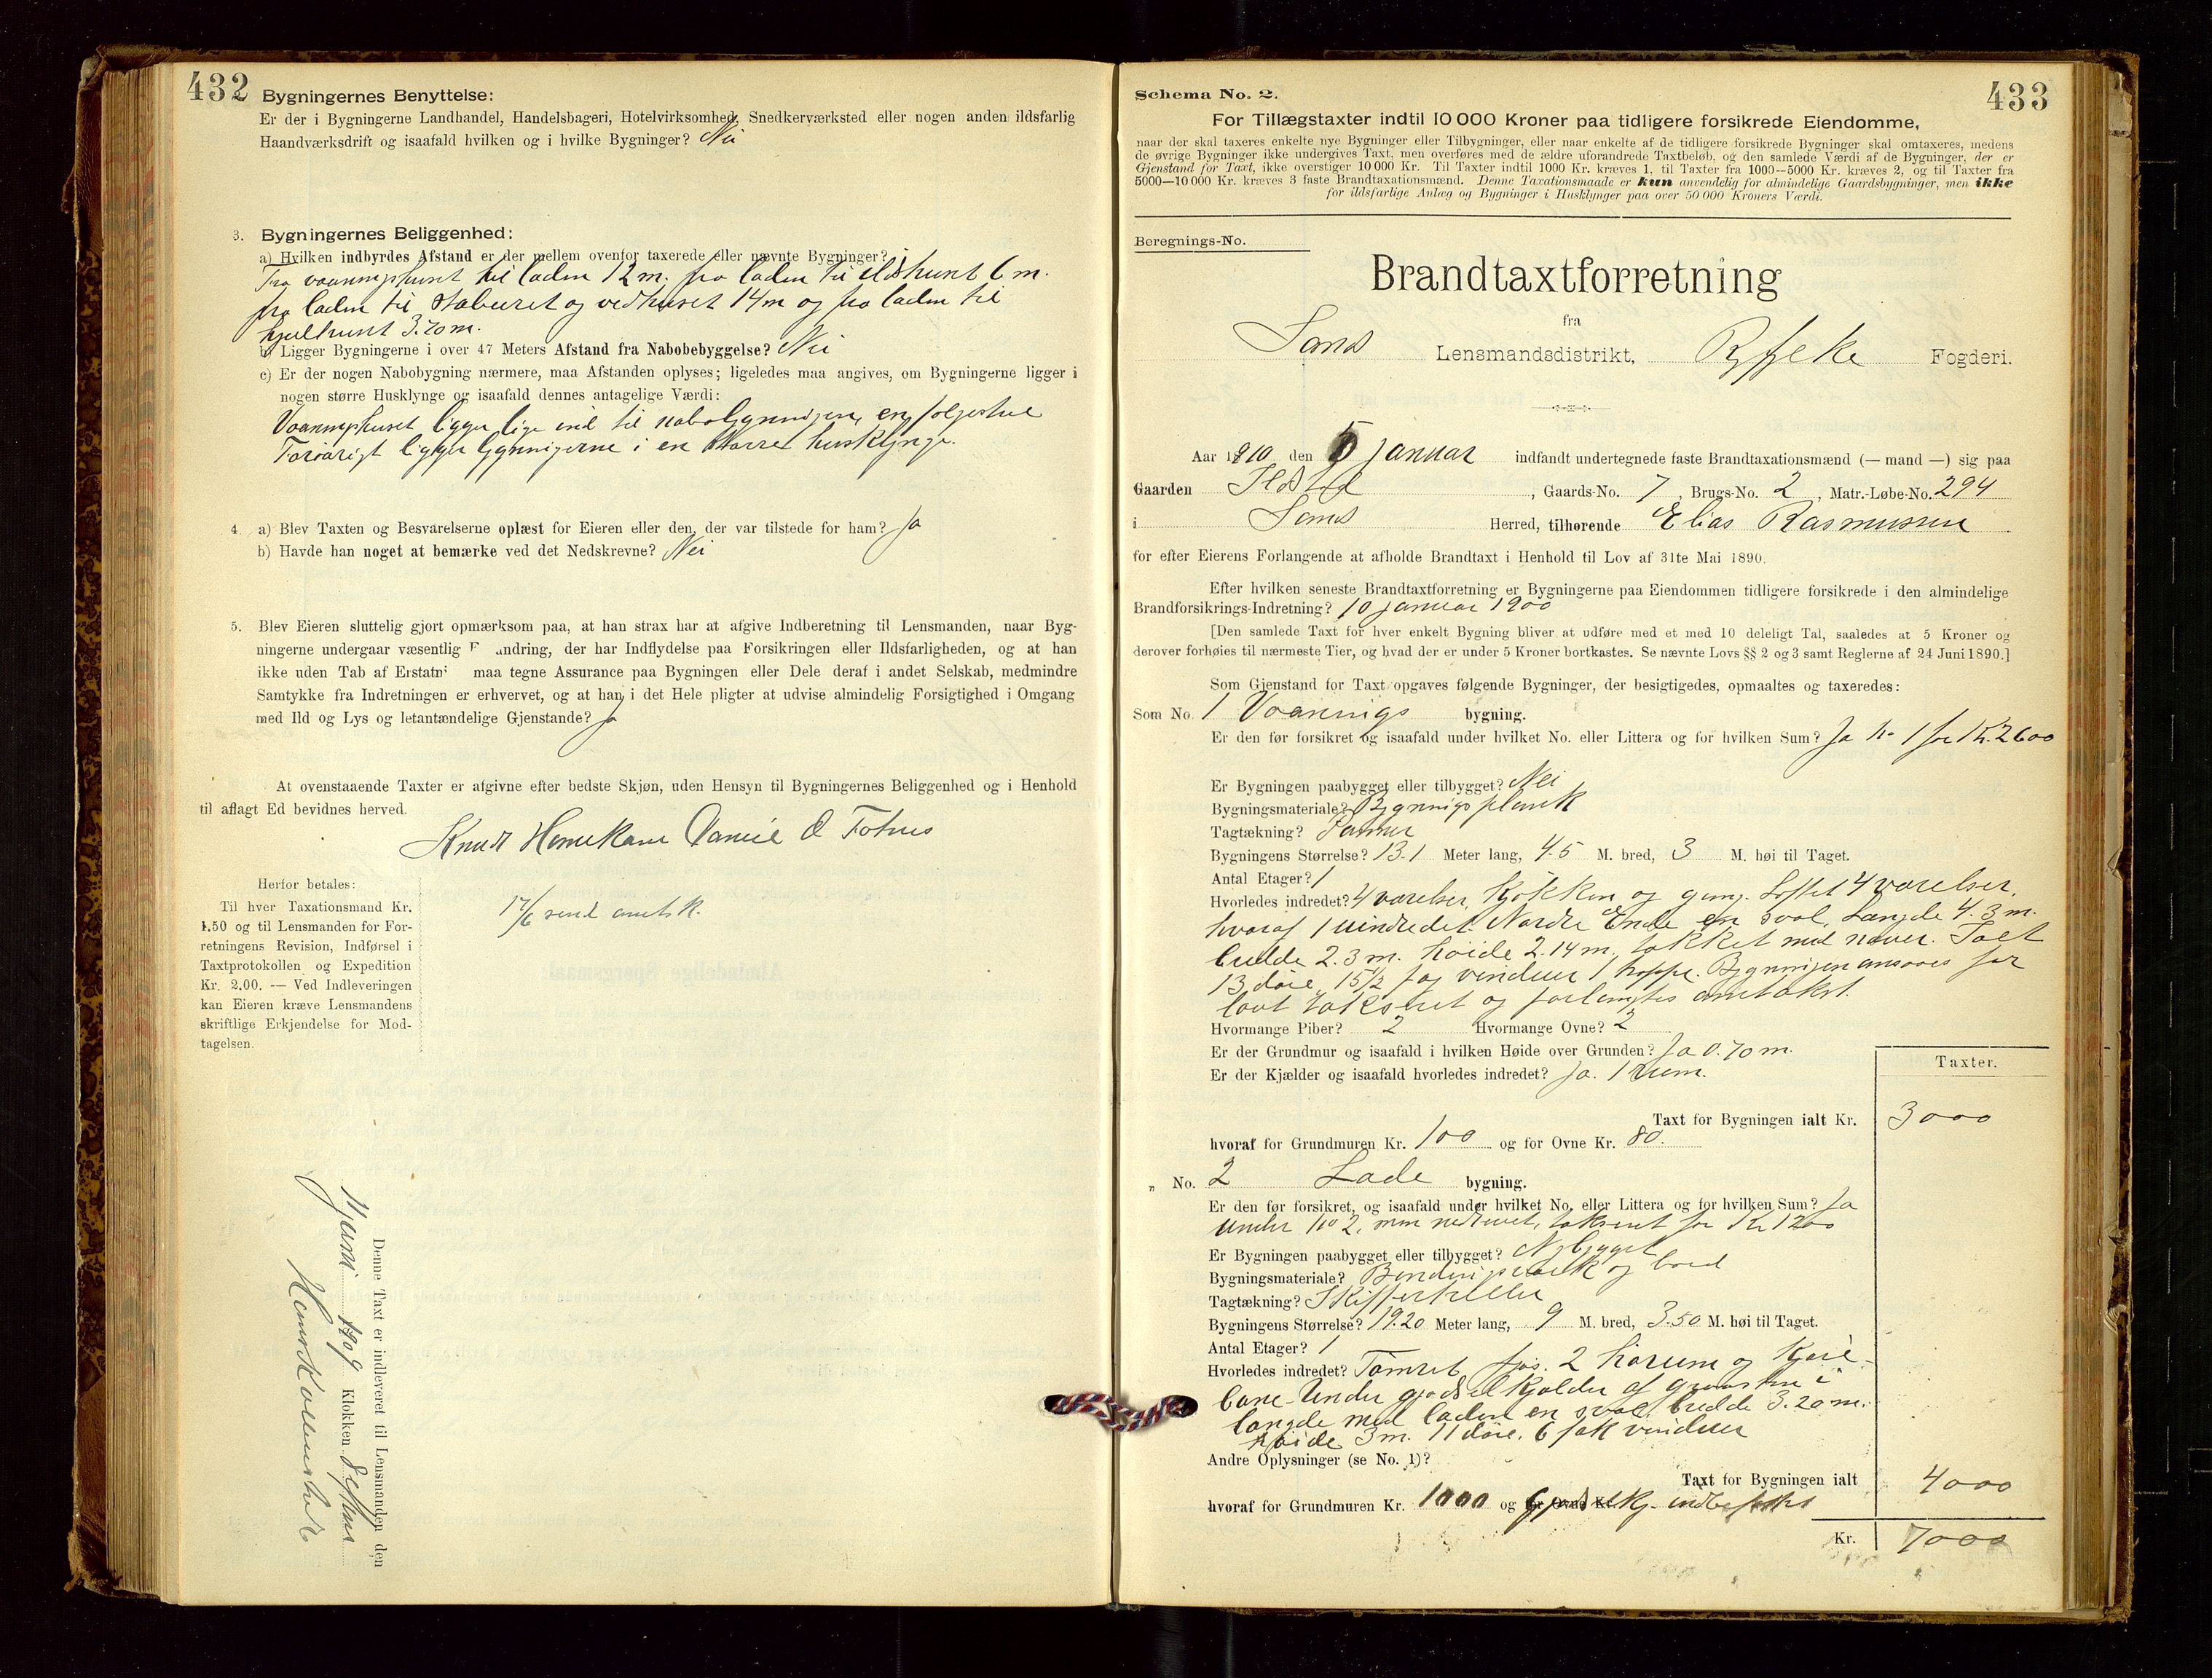 432
Bygningernes Benyttelse:
Er der i Bygningerne Landhandel, Handelsbageri, Hotelvirksomhed, Snedkerværksted eller nogen anden ildsfarlig
Haandværksdrift og isaafald hvilken og i hvilke Bygninger? Nei
3. Bygningernes Beliggenhed:
a) Hvilken indbyrdes Afstand er der mellem ovenfor taxerede eller nævnte Bygninger?
Fra vaaningshuset til laden 12 m. fra laden til ildshuset 6 m.
fra laden til stabburet og vedhuset 14 m og fra laden til
hjulhuset 3.70 m.
b) Ligger Bygningerne i over 47 Meters Afstand fra Nabobebyggelse? Nei
c) Er der nogen Nabobygning nærmere, maa Afstanden oplyses; ligeledes maa angives, om Bygningerne ligger i
nogen større Husklynge og isaafald dennes antagelige Værdi:
Vaaningshuset ligger lige ind til nabobygningen,
ligger bygningerne i en større husklynge.
4. a) Blev Taxten og Besvarelserne oplæst for Eieren eller den, der var tilstede for ham? Ja
b) Havde han noget at bemærke ved det Nedskrevne? Nei
5. Blev Eieren sluttelig gjort opmærksom paa, at han strax har at afgive Indberetning til Lensmanden, naar Byg-
ningerne undergaar væsentlig F andring, der har Indflydelse paa Forsikringen eller Ildsfarligheden, og at han
ikke uden Tab af Erstatni maa tegne Assurance paa Bygningen eller Dele deraf i andet Selskab, medmindre
Samtykke fra Indretningen er erhvervet, og at han i det Hele pligter at udvise almindelig Forsigtighed i Omgang
med Ild og Lys og letantændelige Gjenstande? Ja
At ovenstaaende Taxter er afgivne efter bedste Skjøn, uden Hensyn til Bygningernes Beliggenhed og i Henhold
til aflagt Ed bevidnes herved.
Knud
Herfor betales:
Til hver Taxationsmand Kr.
1.50 og til Lensmanden for For-
retningens Revision, Indførsel i
Taxtprotokollen og Expedition
Kr. 2.00. — Ved Indleveringen
kan Eieren kræve Lensmandens
skriftlige Erkjendelse for Mod-
tagelsen.
17/6 send
Denne Taxt er indleveret til Lensmanden den
1909 Klokken
433
Schema No. 2.
For Tillægstaxter indtil 10 000 Kroner paa tidligere forsikrede Eiendomme,
naar der skal taxeres enkelte nye Bygninger eller Tilbygninger, eller naar enkelte af de tidligere forsikrede Bygninger skal omtaxeres, medens
de øvrige Bygninger ikke undergives Taxt, men overføres med de ældre uforandrede Taxtbeløb, og den samlede Værdi af de Bygninger, der er
Gjenstand for Taxt, ikke overstiger 10 000 Kr. Til Taxter indtil 1000 Kr. kræves 1, til Taxter fra 1000—5000 Kr. kræves 2, og til Taxter fra
5000—10 000 Kr. kræves 3 faste Brandtaxationsmænd. Denne Taxationsmaade er kun anvendelig for almindelige Gaardsbygninger, men ikke
for ildsfarlige Anlæg og Bygninger i Husklynger paa over 50 000 Kroners Værdi.
Beregnings-No.
Brandtaxtforretning
fra
Sand Lensmandsdistrikt, Ryfylke Fogderi.
Aar 1910 den 5 Januar indfandt undertegnede faste Brandtaxationsmænd (— mand —) sig paa
Gaarden , Gaards-No. 7, Brugs-No. 2, Matr.-Løbe-No. 294
i Sand Herred, tilhørende Elias Rasmussen
for efter Eierens Forlangende at afholde Brandtaxt i Henhold til Lov af 31te Mai 1890.
Efter hvilken seneste Brandtaxtforretning er Bygningerne paa Eiendommen tidligere forsikrede i den almindelige
Brandforsikrings-Indretning? 10 januar 1900
[Den samlede Taxt for hver enkelt Bygning bliver at udføre med et med 10 deleligt Tal, saaledes at 5 Kroner og
derover forhøies til nærmeste Tier, og hvad der er under 5 Kroner bortkastes. Se nævnte Lovs §§ 2 og 3 samt Reglerne af 24 Juni 1890.]
Som Gjenstand for Taxt opgaves følgende Bygninger, der besigtigedes, opmaaltes og taxeredes:
Som No. 1 Vaanings bygning.
Er den før forsikret og isaafald under hvilket No. eller Littera og for hvilken Sum? Ja No 1 for Kr. 2600
Er Bygningen paabygget eller tilbygget? Nei
Bygningsmateriale? Bygningsplank
Tagtækning?
Bygningens Størrelse? 13.1 Meter lang, 4.5 M. bred, 3 M. høi til Taget.
Antal Etager? 1
Hvorledes indredet? 4 værelser, kjøkken og gang. Loftet 4 værelser,
hvoraf 1 uindredet. Nordre Ende en sval, længde 4.3 m.
bredde 2.3 m. høide 2.14 m., tækket med næver. Ialt
13 døre, 15 1/2 fag vinduer 1 trappe. Bygningen ansaaes for
lavt takseret og forlangtes omtakst.
Hvormange Piber? 2 Hvormange Ovne? 2
Er der Grundmur og isaafald i hvilken Høide over Grunden? Ja 0.70 m.
Er der Kjælder og isaafald hvorledes indredet? Ja. 1 rum.
Taxter.
Taxt for Bygningen ialt Kr. 3000
hvoraf for Grundmuren Kr. 100 og for Ovne Kr. 80.
" No. 2 Lade bygning.
Er den før forsikret, og isaafald under hvilket No. eller Littera og for hvilken Sum? Ja
under No 2, men nedrevet, takseret for Kr 1200
Er Bygningen paabygget eller tilbygget? Nybygget
Bygningsmateriale? Bindingsverk og bord
Tagtækning? Skifferheller
Bygningens Størrelse? 19.20 Meter lang, 9 M. bred, 3.50 M. høi til Taget.
Antal Etager? 1
Hvorledes indredet? Tømret fjøs. 2 høirum og kjøre-
bane. Under gjødselkjælder af graasten i
længde med laden en sval, bredde 3.20 m.
høide 3 m. 11 døre. 6 fak vinduer
Andre Oplysninger (se No. 1)?
Taxt for Bygningen ialt 4000
hvoraf for Grundmuren Kr. 1000 og Gjødselkj.
Kr. 7000